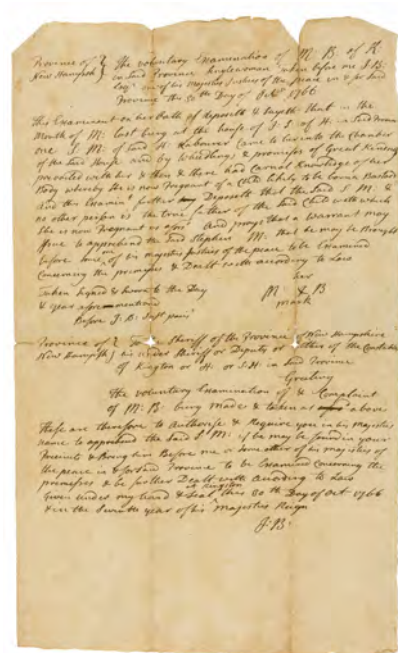 Province of } The voluntary Examination of M. B. of K.
New Hampsh } in Said Province Singlewoman taken before me J. B.
Esqr one of his Majestys Justices of the peace in & for Said
Province this 30th Day of Octr 1766
This Examinant on her Oath Deposeth & Sayeth that in the
Month of M: last being at the house of J. S. of H: in Said Province
one S. M. of Said H. Labourer Came to her into the Chamber
of the Said House and by Wheedlings & promises of Great Kindness
prevailed with her & then & there had Carnal Knowledge of her
Body whereby She is now Pregnant of a Child likely to be born a Bastard
and this Examint further Deposeth that the Said S M. &
no other person is the true father of the Said Child with which
She is now Pregnant as aforesd And prays that a Warrant may
Issue to apprehend the Said Stephen M: that he may be Brought
before one of his majestys Justices of the peace to be Examined
Concerning the premises & Dealt with according to Law
her
Taken Signed & Sworn to the Day M & B
& year afore mentioned mark
Before J: B: Just pacis
Province of } To the Sheriff of the Province of New Hampshire
New Hampsh } his under Sheriff or Deputy or either of the Constables
of Kington or H: or S:H: in Said Province
Greeting
The voluntary Examination of & Complaint
of M: B: being made & taken as above
these are therefore to Authorise & Require you in his majestys
name to apprehend the Said S M: if he may be found in your
Precincts & Bring him Before me or Some other of his majestys of
the peace in & for Said Province to be Examined Concerning the
premises & be further Dealt with according to Law
Given under my hand & Seal at Kingston this 30th Day of Oct 1766
& in the Seventh year of his Majestys Reign
J: B: